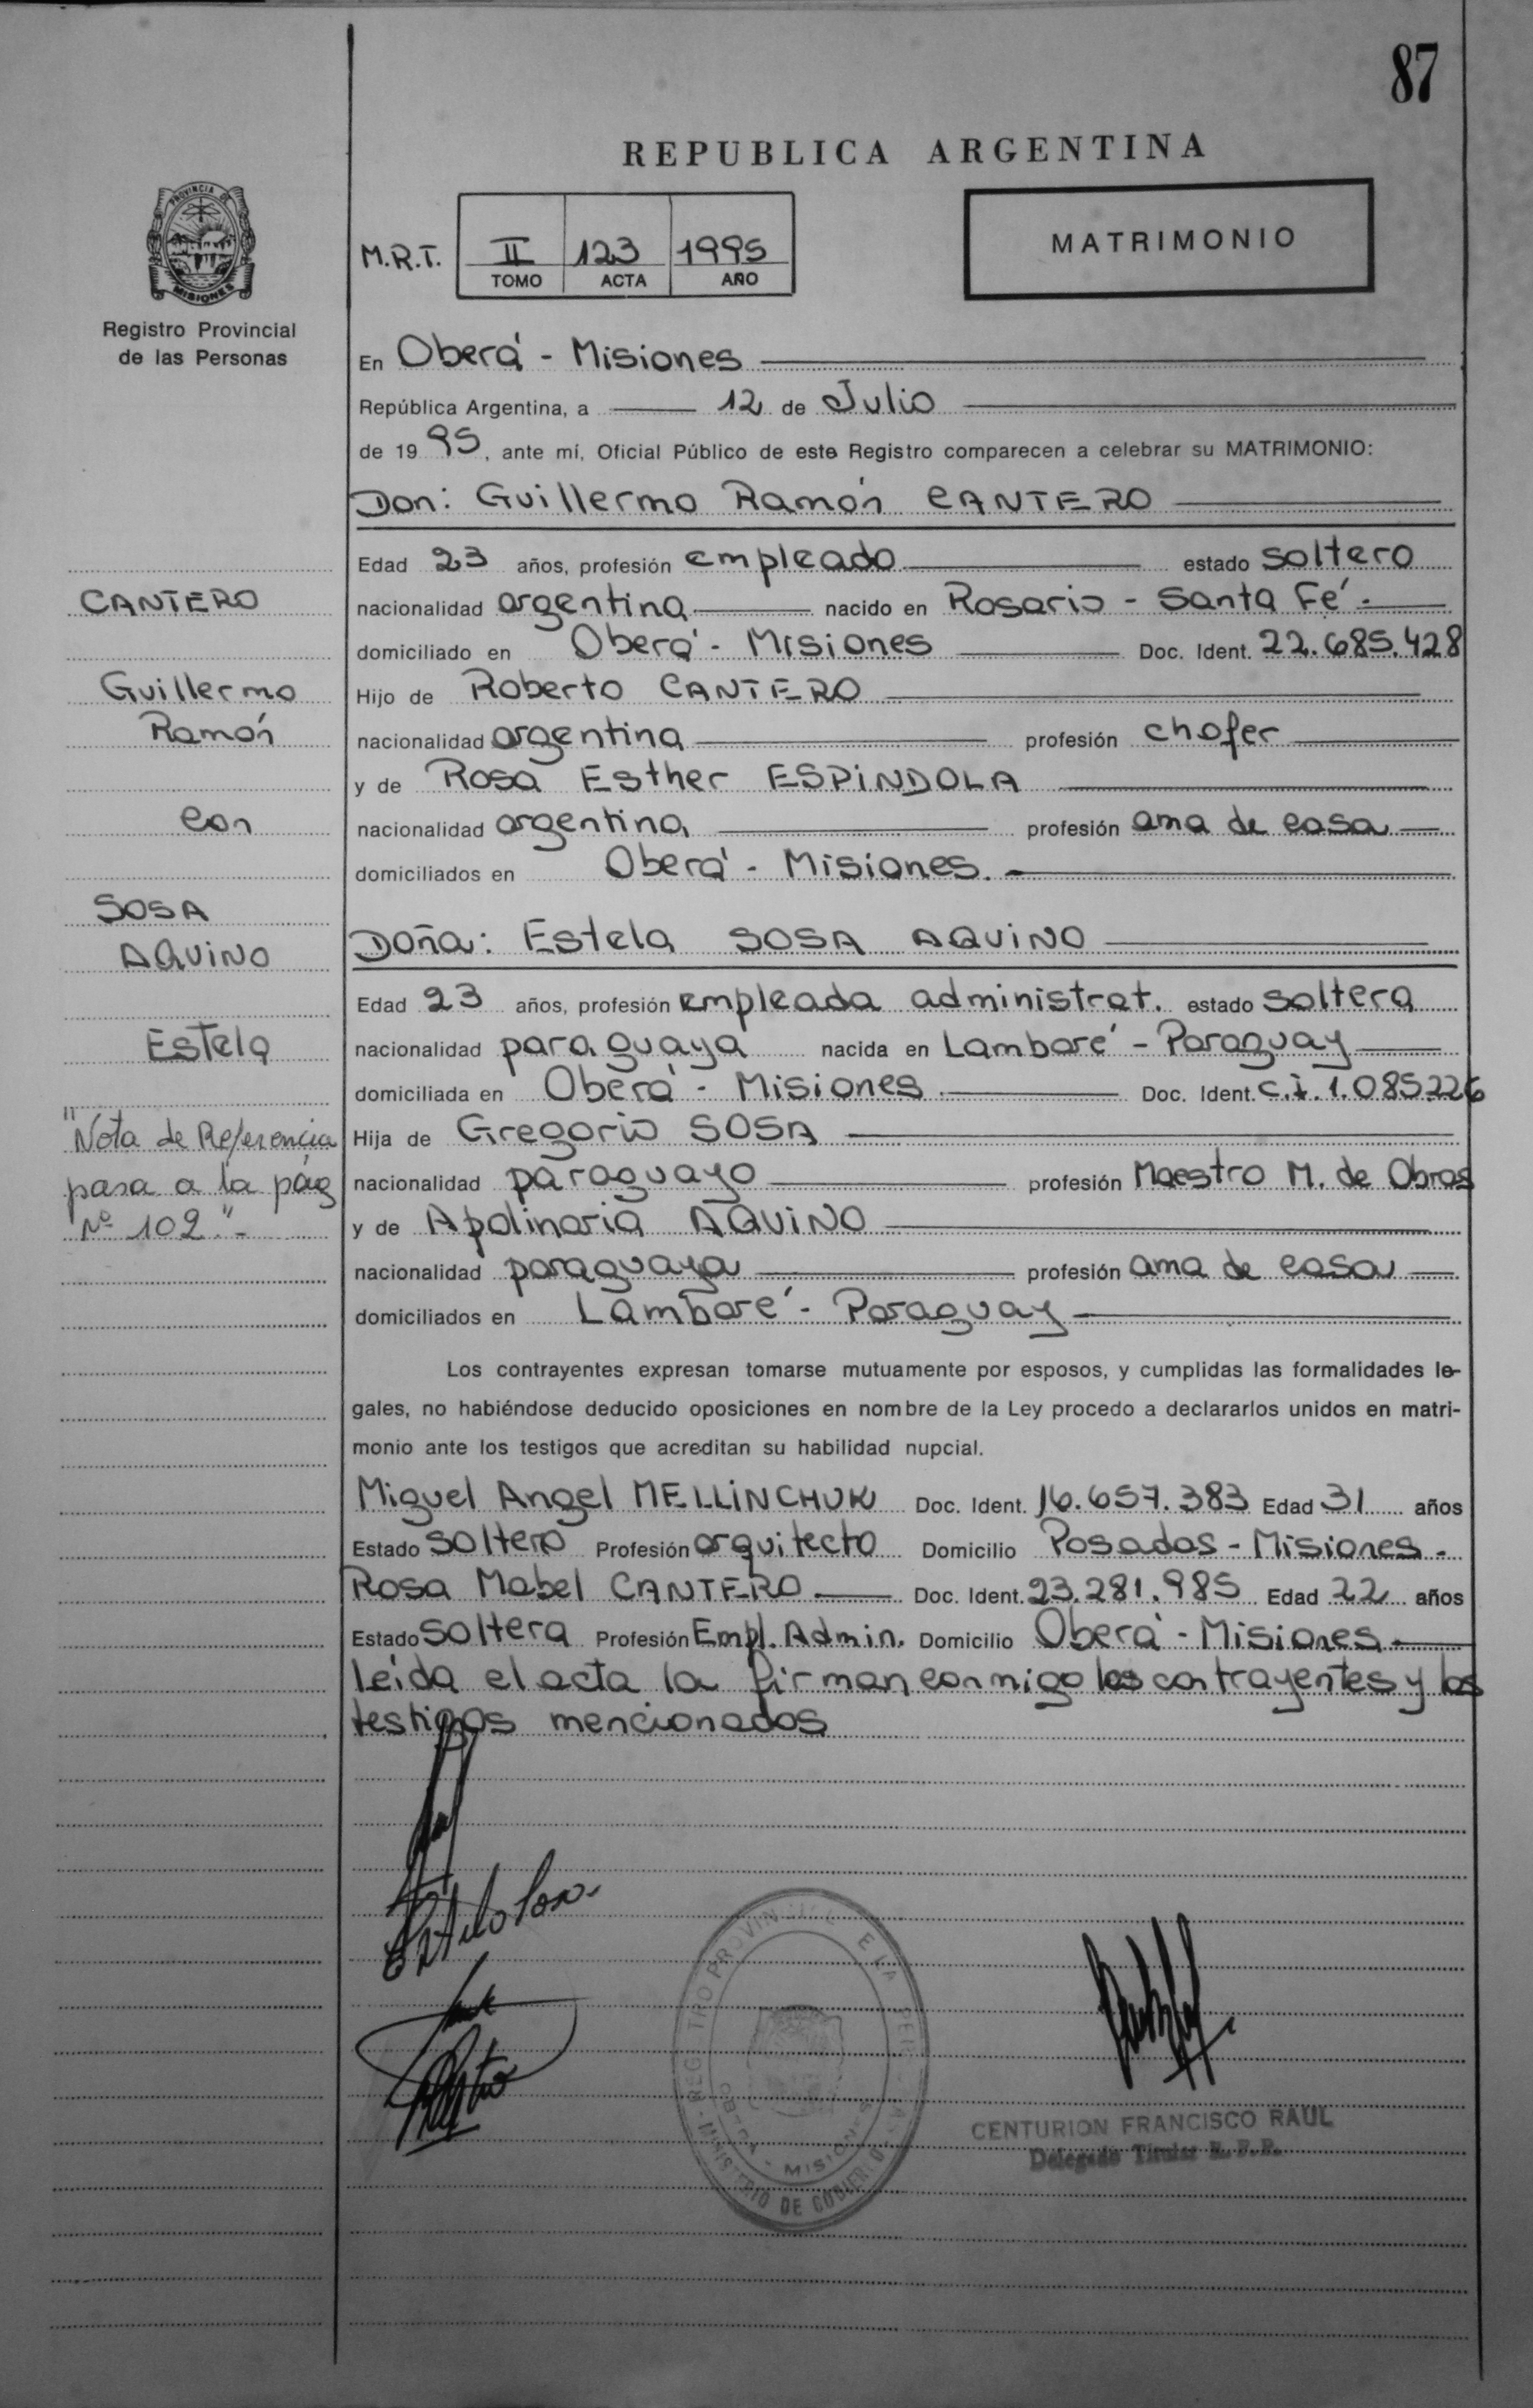 87
REPUBLICA ARGENTINA
PROVINCIA DE
MISIONES
Registro Provincial
de las Personas
M.R.T. II 123 1995
TOMO ACTA AÑO
MATRIMONIO
En Oberá - Misiones
República Argentina, a 12 de Julio
de 19 95, ante mí, Oficial Público de este Registro comparecen a celebrar su MATRIMONIO:
Don: Guillermo Ramón CANTERO
Edad 23 años, profesión empleado estado soltero
nacionalidad argentina nacido en Rosario - Santa Fé.
domiciliado en Oberá - Misiones Doc. Ident. 22.685.428
Hijo de Roberto CANTERO
nacionalidad argentina profesión chofer
y de Rosa Esther ESPINDOLA
nacionalidad argentina profesión ama de casa
domiciliados en Oberá - Misiones.
Doña: Estela SOSA AQUINO
Edad 23 años, profesión empleada administrat. estado soltera
nacionalidad paraguaya nacida en Lambaré - Paraguay
domiciliada en Oberá - Misiones Doc. Ident. C.I. 1.085.226
Hija de Gregorio SOSA
nacionalidad paraguayo profesión Maestro M. de Obras
y de Apolinaria AQUINO
nacionalidad paraguaya profesión ama de casa
domiciliados en Lambaré - Paraguay
CANTERO
Guillermo
Ramón
con
SOSA
AQUINO
Estela
"Nota de Referencia
pasa a la pág
Nº 102".-
Los contrayentes expresan tomarse mutuamente por esposos, y cumplidas las formalidades le-
gales, no habiéndose deducido oposiciones en nombre de la Ley procedo a declararlos unidos en matri-
monio ante los testigos que acreditan su habilidad nupcial.
Miguel Angel MELLINCHUK Doc. Ident. 16.657.383 Edad 31 años
Estado soltero Profesión arquitecto Domicilio Posadas - Misiones -
Rosa Mabel CANTERO Doc. Ident. 23.281.985 Edad 22 años
Estado soltera Profesión Empl. Admin. Domicilio Oberá - Misiones
leída el acta la firman conmigo los contrayentes y los
testigos mencionados
Estela Sosa
OBERA - MISIONES
MINISTERIO DE GOBIERNO
CENTURION FRANCISCO RAUL
Delegado Titular R. P. P.